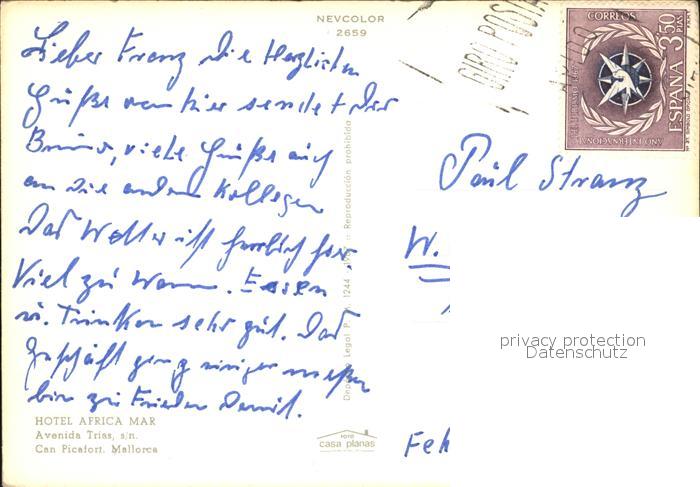 NEVCOLOR
2659
Lieber Franz die Herzlichsten
Grüße von hier sendet dir
Bruno, viele Grüße auch
an die andern Kollegen
Das Wetter ist herrlich hir.
Viel zu Warm. Essen
u. Trinken sehr gut. Das
Geschäft ging einiger maßen
bin zu Frieden Damit.
HOTEL AFRICA MAR
Avenida Trias, s/n.
Can Picafort. Mallorca
Depósito Legal P. M. 1244 :: Reproducción prohibida
FOTO
casa planas
GIRO POSTAL
CORREOS
3,50 PTAS
ESPAÑA
AÑO INTERNACIONAL
Paul Stranz
W.
privacy protection
Datenschutz
Feh